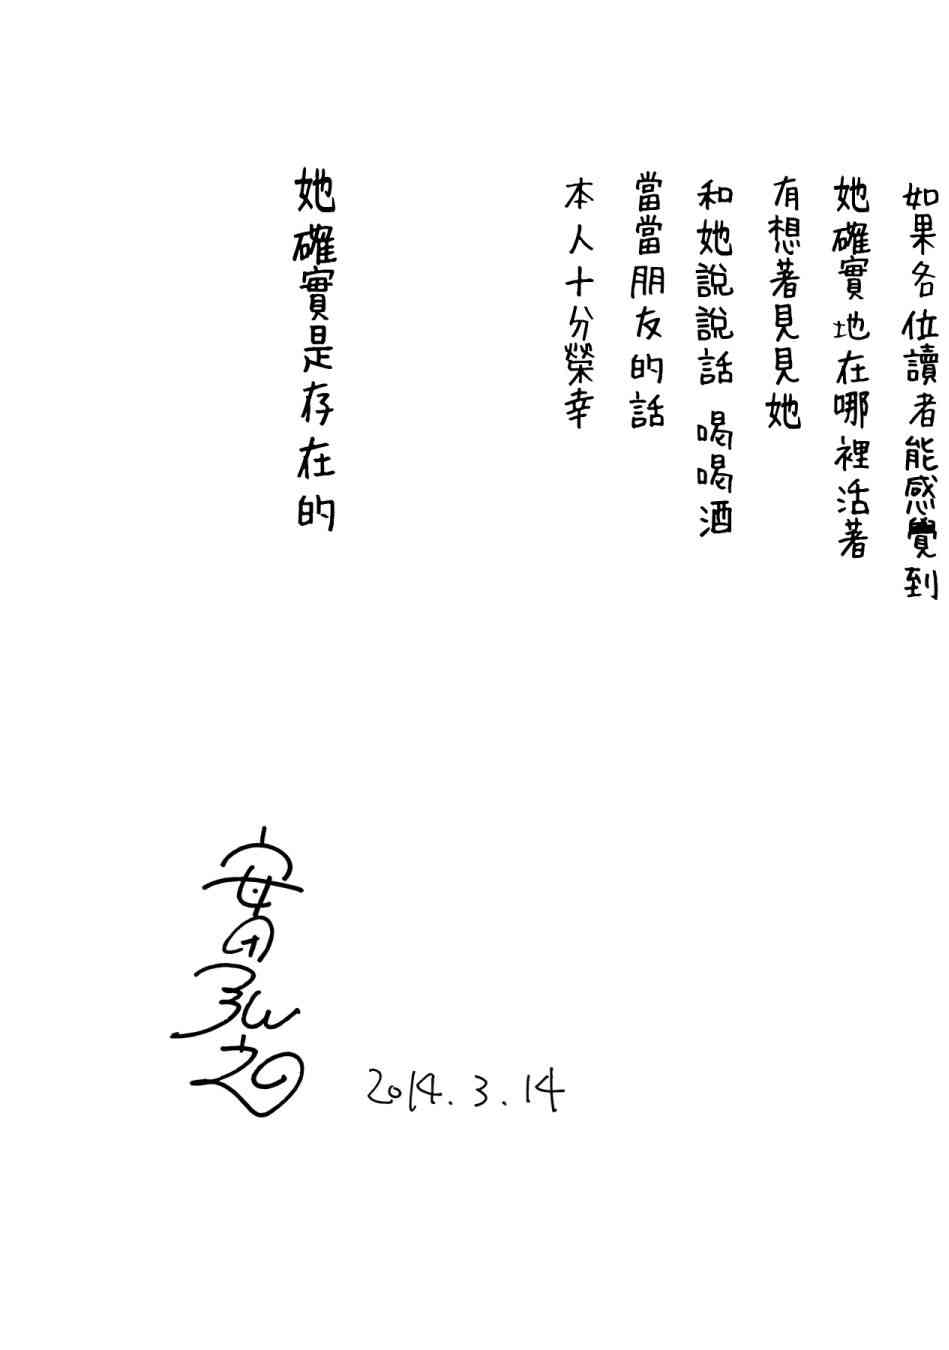 如果各位讀者能感覺到
她確實地在哪裡活著
有想著見見她
和她說說話 喝喝酒
當當朋友的話
本人十分榮幸
她確實是存在的
安田弘之
2014.3.14